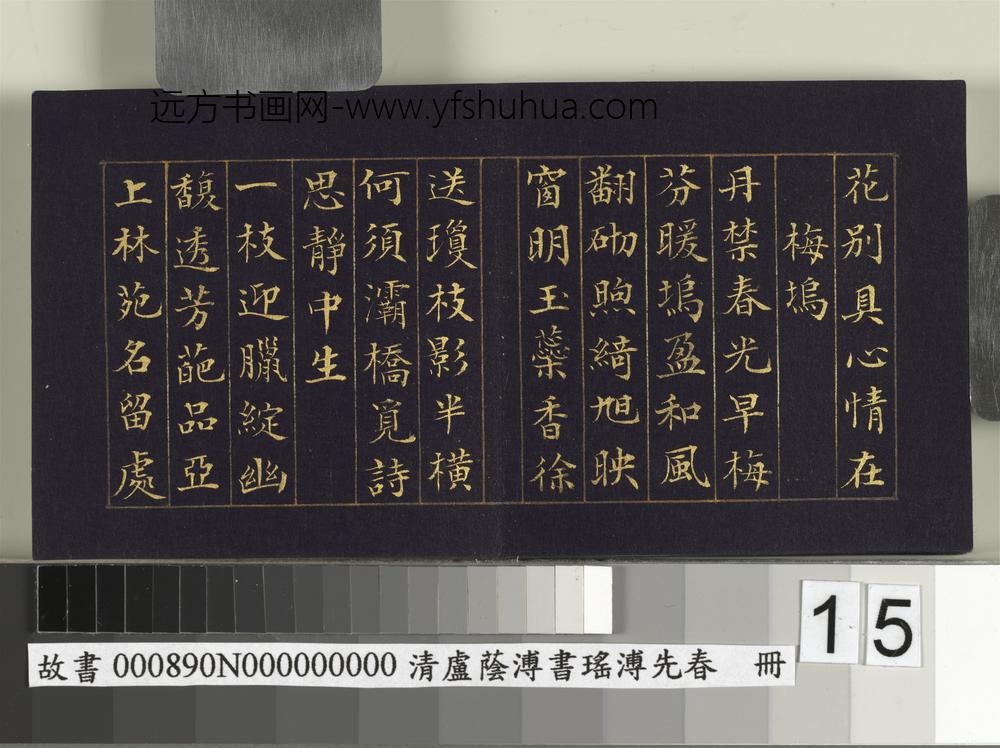 远方书画网-www.yfshuhua.com
花別具心情在
梅塢
丹禁春光早梅
芬暖塢盈和風
翻砌煦綺旭映
窗明玉蘂香徐
送瓊枝影半橫
何須灞橋覓詩
思靜中生
一枝迎臘綻幽
馥透芳葩品亞
上林苑名留處
15
故書 000890N000000000 清盧蔭溥書瑤溥先春 冊